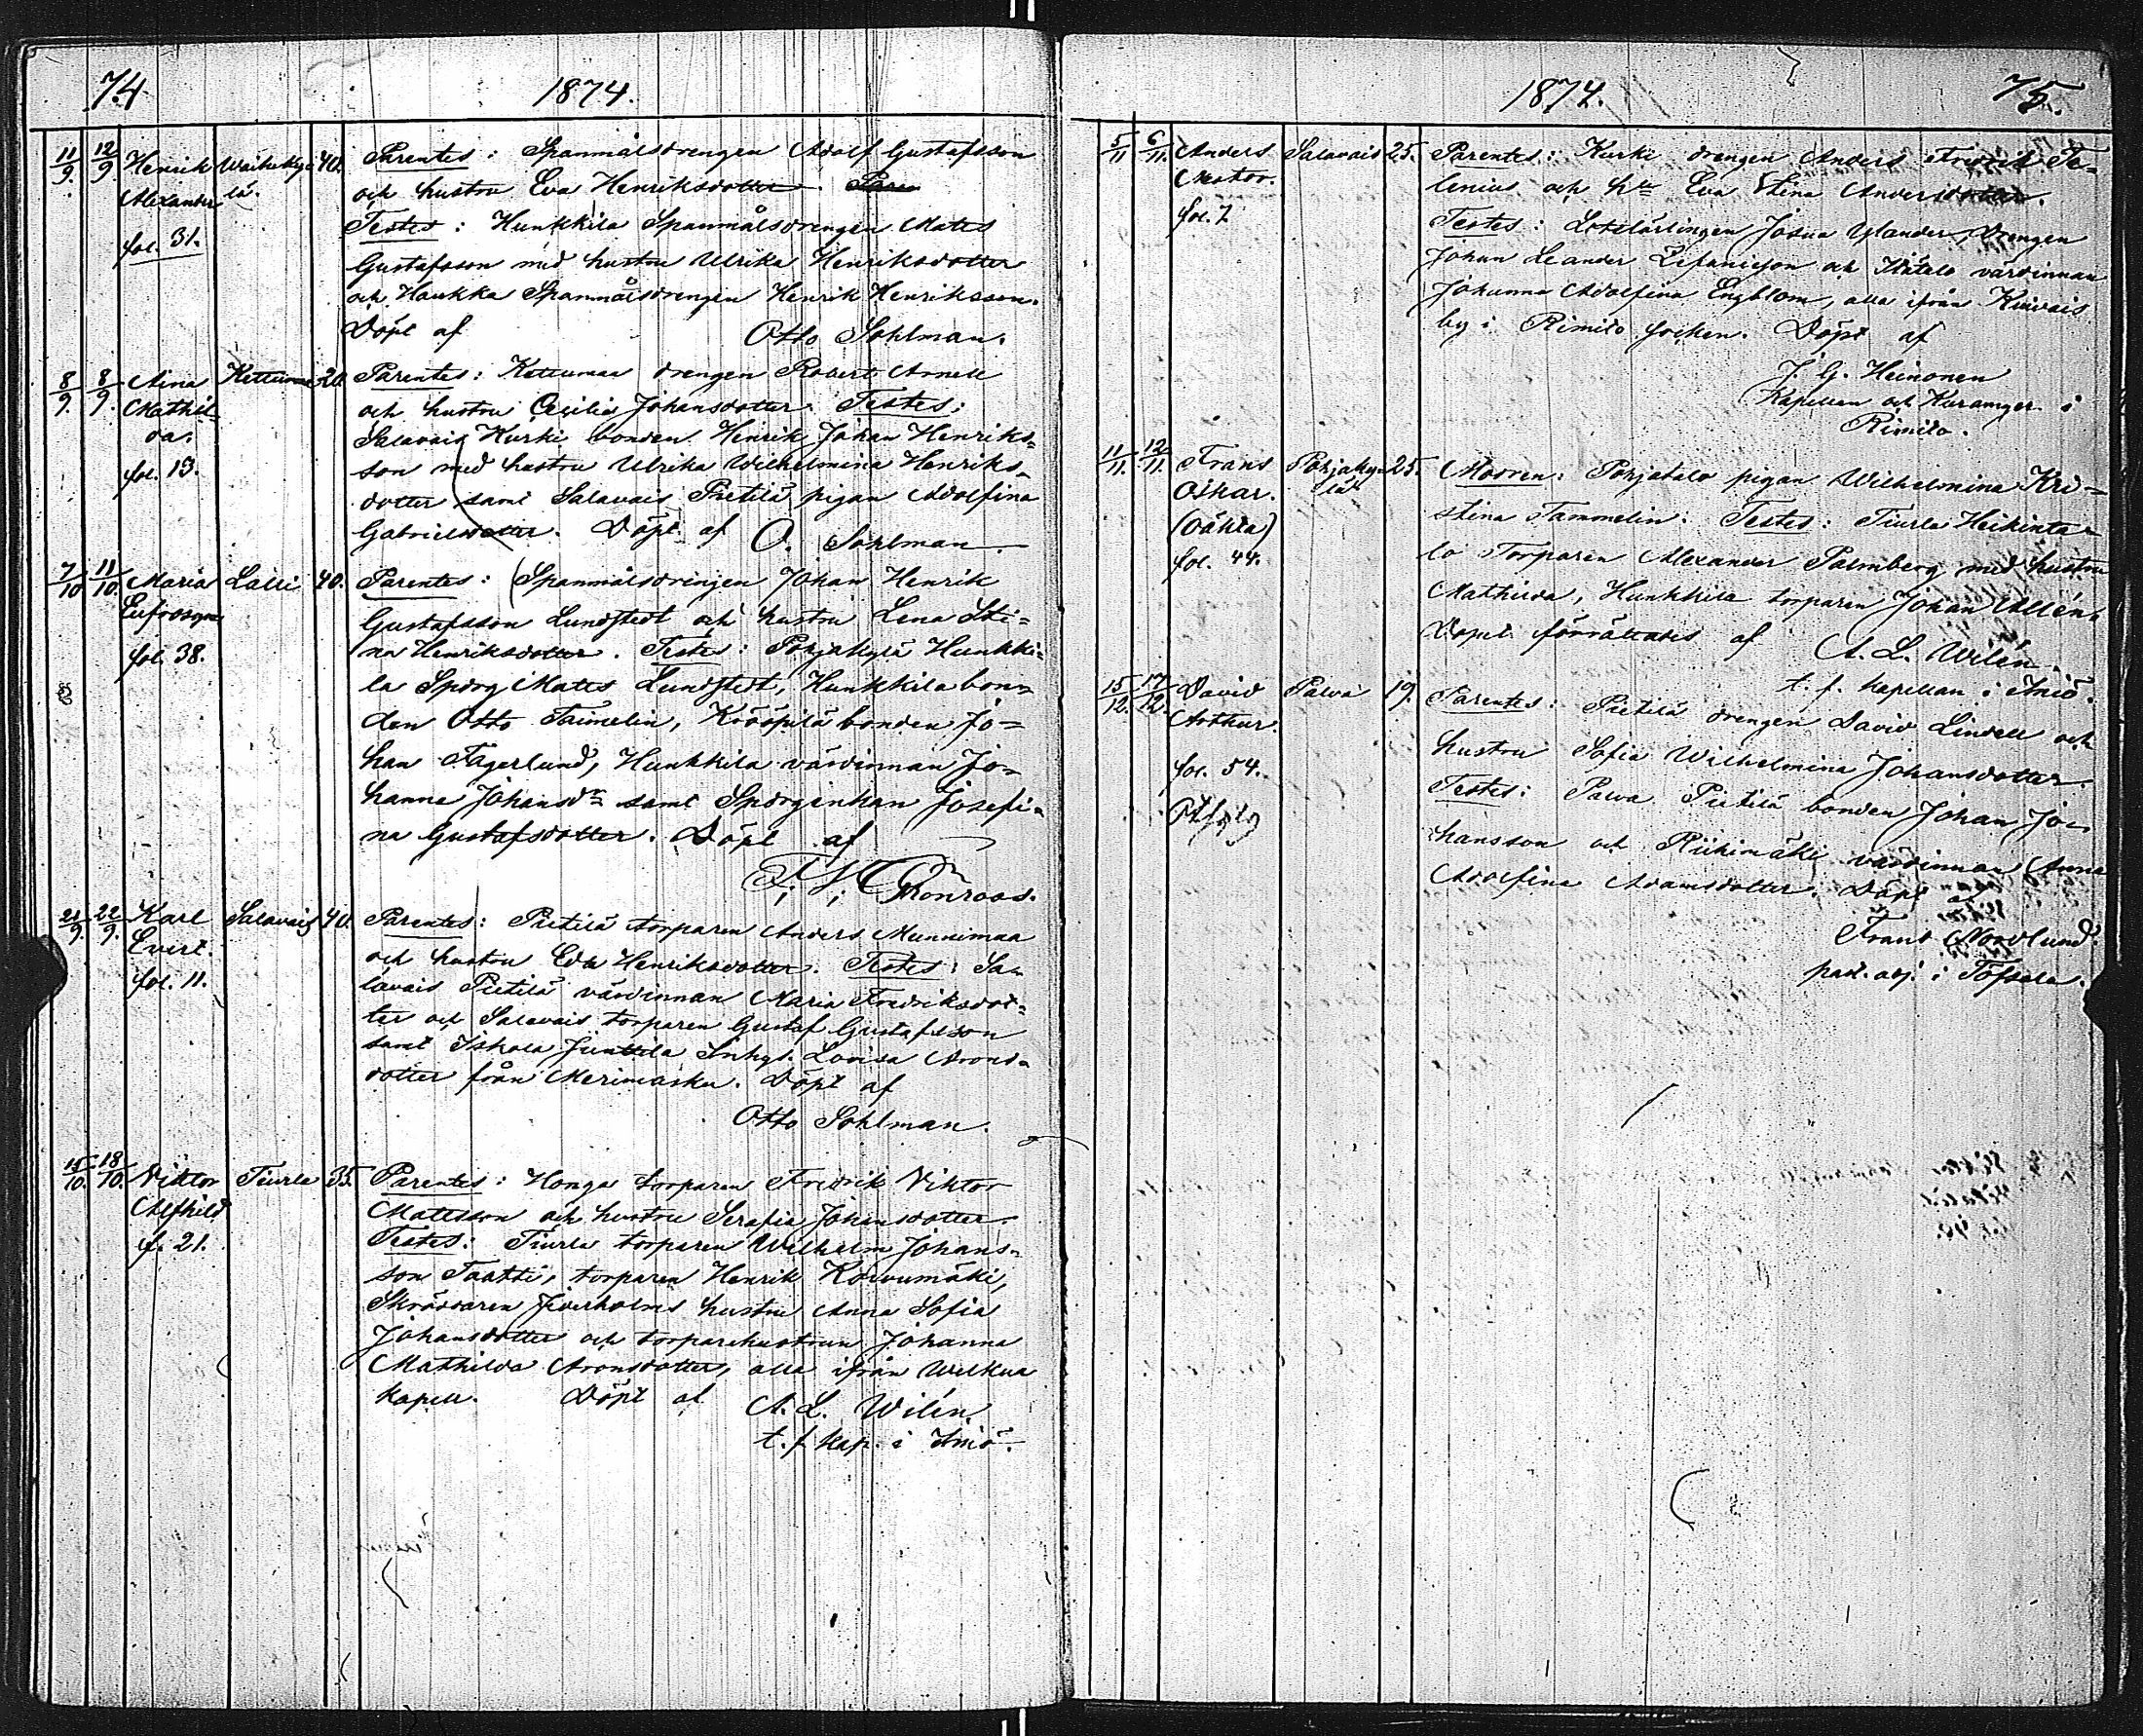 74
1874.
11/9. 12/9. Henrik Waihekyi- 40. Parentes: Spanmålsdrengen Adolf Gustafsson
Alexander lä. och hustru Eva Henriksdotter.
fol. 31. Testes: Hunkkila Spanmålsdrengen Mats
Gustafsson med hustru Ulrika Henriksdotter
och Haukka Spanmålsdrengen Henrik Henriksson.
Döpt af Otto Sohlman.
8/9. 8/9. Aina Kettumaa 20. Parentes: Kettumaa drengen Robert
Mathil- och hustru Cecilia Johansdotter. Testes:
da. Salavais Kurki bonden Henrik Johan Henriks-
fol. 13. son med hustru Ulrika Wilhelmina Henriks-
dotter samt Salavais Pietilä pigan Adolfina
Gabrielsdotter. Döpt af O. Sohlman.
7/10 11/10. Maria Lailli 40. Parentes: Spanmålsdrengen Johan Henrik
Eufrosyne Gustafsson Lundstedt och hustru Lena Sti-
fol. 38. na Henriksdotter. Testes: Pohjakylä Hunkki-
la Spdrg Mats Lundstedt, Hunkkila bon-
den Otto Taimelin, Krööpilä bonden Jo-
han Fagerlund, Hunkkila värdinnan Jo-
hanna Johansdr samt Spdrgenkan Josefi-
na Gustafsdotter. Döpt af
Monroos.
21/9. 22/9. Karl Salavais 40. Parentes: Pietilä torparen Anders Munnimaa
Evert. och hustru Eva Henriksdotter. Testes: Sa-
fol. 11. lavais Pietilä värdinnan Maria Fredriksdot-
ter och Salavais torparen Gustaf Gustafsson
samt Iskala Junttila Inhys. Lovisa Arons-
dotter från Merimasku. Döpt af
Otto Sohlman.
15/10. 18/10. Viktor Tiurla 35. Parentes: Honga torparen Fredrik Viktor
Alfhild Mattsson och hustru Serafia Johansdotter.
f. 21. Testes: Tiurla torparen Wilhelm Johans-
son Taatti, torparen Henrik Koivumäki,
Skräddaren hustru Anna Sofia
Johansdotter och torparehustrun Johanna
Mathilda Aronsdotter, alla ifrån Welkua
kapell. Döpt af A. L. Wilén.
t. f. kap. i Iniö.
1874. 75.
5/11 6/11. Anders Salavais 25. Parentes: Kurki drengen Anders Fredrik Te-
lenius och hu Eva Stina Andersdotter.
fol. 7 Testes: Lotslärlingen Josua Ylander, Drengen
Johan Leander Zefaniasson och värdinnan
Johanna Adolfina Engblom, alla ifrån
by i Rimito socken. Döpt af
J. G. Heinonen
Kapellan och i
Rimito.
11/11. 12/11. Frans Pohjaky- 25. Modren: Pohjatalo pigan Wilhelmina Kri-
Oskar. lä stina Tammelin. Testes: Tiurla Heikinta-
(Oäkta) lo Torparen Alexander Palmberg med hustru
fol. 44. Mathilda, Hunkkila torparen Johan Allén.
Dopet förrättades af A. L. Wilén.
t. f. kapellan i Iniö.
15/12. 17/12. David Palva 19. Parentes: Pietilä drengen David Lindell och
Arthur. hustru Sofia Wilhelmina Johansdotter.
fol. 54. Testes: Palva Pietilä bonden Johan Jo-
hansson och Riihimäki värdinnan Anna
Adolfina Adamsdotter. Döpt af
Frans Nordlund.
past. adj. i Töfsala.